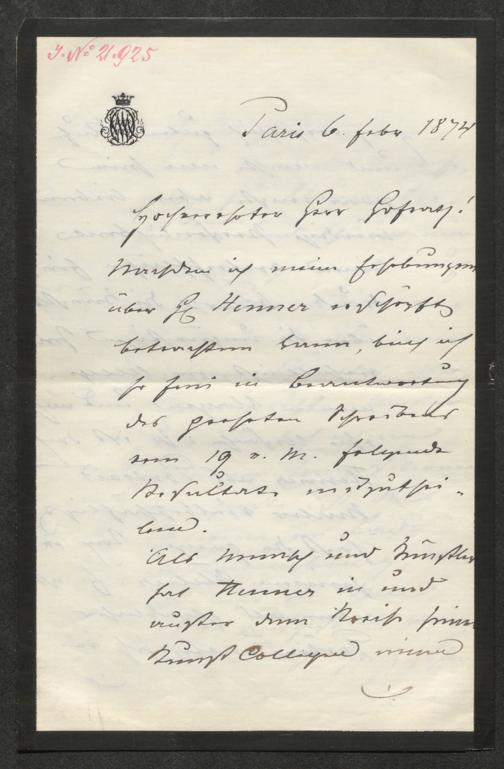 J. No 21.925
Paris 6. febr 1874
Hochverehrter Herr Hofrath!
Nachdem ich meine Erhebungen
über H Henner erschöpft
betrachten kann, bin ich
so frei in Beantwortung
des geehrten Schreibens
vom 19 v. M. folgende
Resultate mitzuthei-
len.
Als Mensch und Künstler
hat Henner in und
außer dem Kreise seiner
Kunst Collegen einen